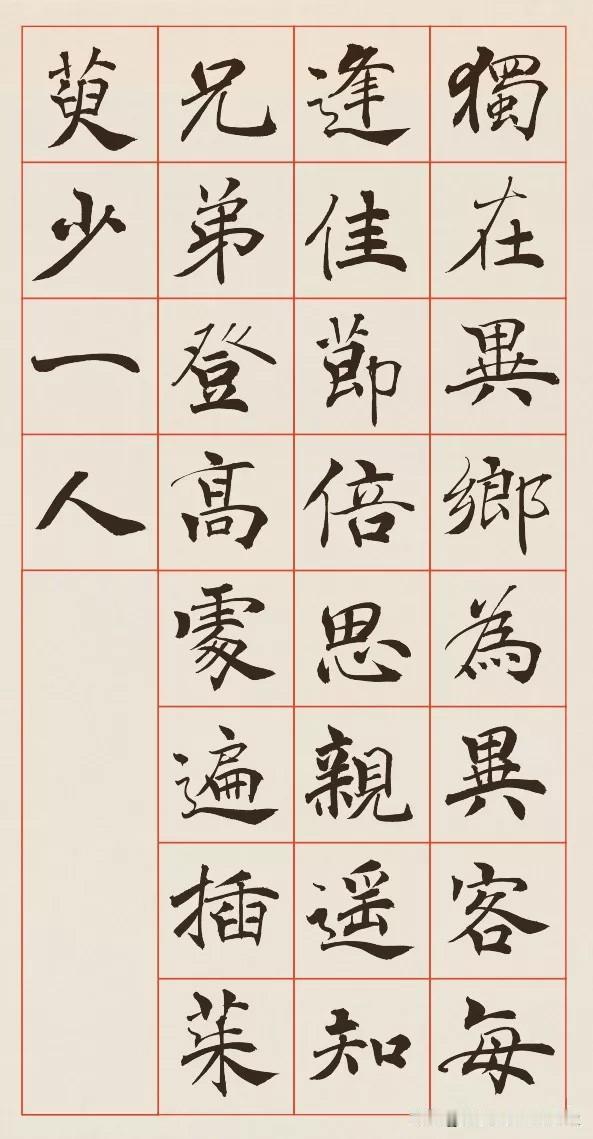 獨在異鄉為異客每
逢佳節倍思親遥知
兄弟登高處遍插茱
萸少一人